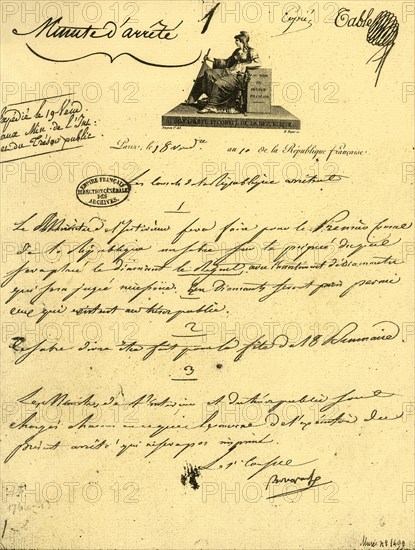 Minute d'arrêté
1
Expédié
Table
Expédié le 19 Vend
aux Min. de l'Int.
et du Trésor public
AU NOM DU PEUPLE FRANÇAIS
BONAPARTE 1er CONSUL DE LA RÉPUBLIQUE
Paris, le 18 vend.re an 10 de la République française.
EMPIRE FRANÇAIS
DIRECTION GÉNÉRALE
DES
ARCHIVES
Les Consuls de la République arrêtent
1
Le Ministre de l'Intérieur fera faire pour le Premier Consul
de la République un sabre sur la poignée duquel
sera placé le diamant le Régent, avec l'assortiment de diamants
qui sera jugé nécessaire. Ces Diamants seront pris parmi
ceux qui existent au trésor public.
2
Ce sabre devra être fait pour la fête du 18 Brumaire.
3
Les Ministres de l'Intérieur et du trésor public sont
chargés chacun en ce qui le concerne de l'exécution du
présent arrêté qui ne sera pas imprimé.
Le 1er Consul
Bonaparte
Musée n° 1499
PHOTO12